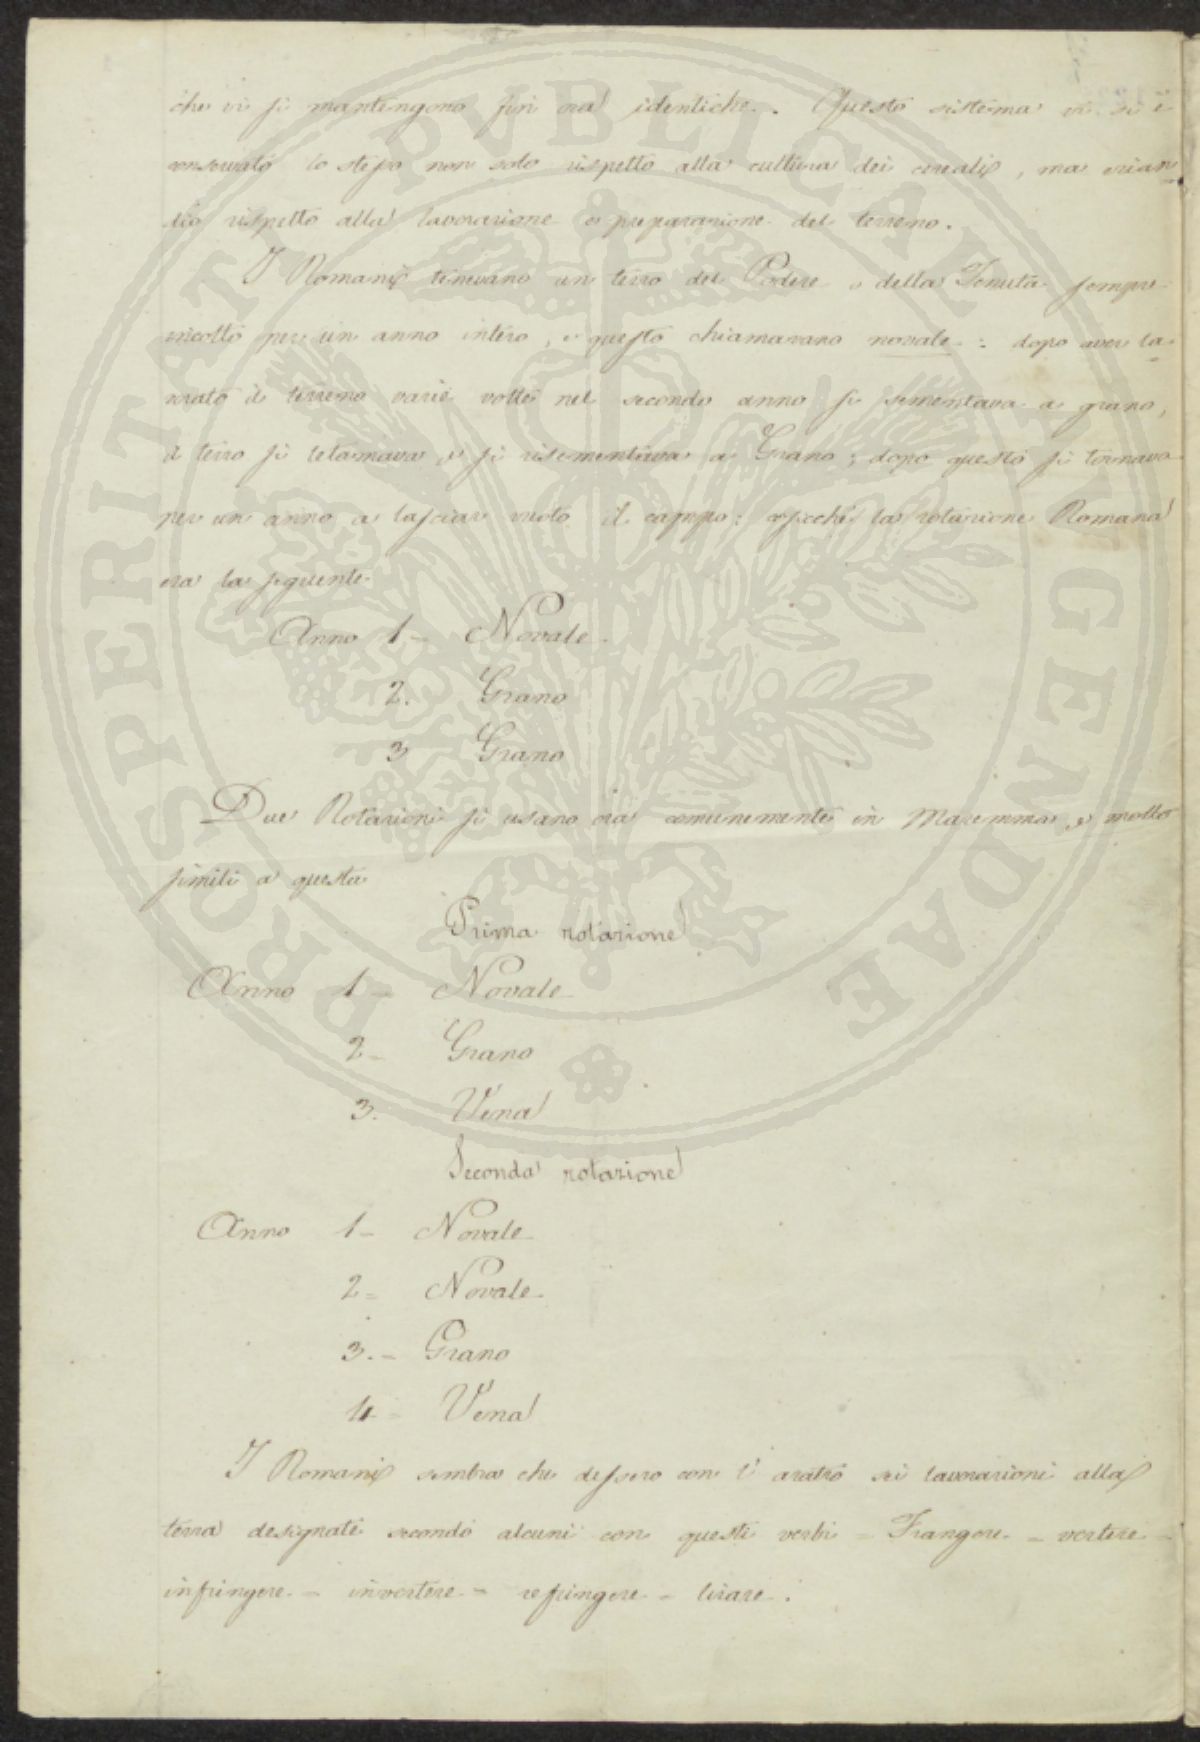 che vi si mantengono fin ora identiche. Questo sistema vi si è
conservato lo stesso non solo rispetto alla cultura dei cereali, ma ezian
dio rispetto alla lavorazione e preparazione del terreno.
I Romani tenevano un terzo del Podere o della Tenuta sempre
incolto per un anno intero, e questo chiamavano novale: dopo aver la
vorato il terreno varie volte nel secondo anno si sementava a grano,
il terzo si letamava e si risementava a Grano; dopo questo si tornava
per un anno a lasciar vuoto il campo: cosicché la rotazione Romana
era la seguente.
Anno 1 - Novale.
2. Grano
3 Grano
Due Rotazioni si usano ora comunemente in Maremma, e molto
simili a questa
Prima rotazione
Anno 1 - Novale
2 - Grano
3. Vena
Seconda rotazione
Anno 1 - Novale
2 = Novale.
3. - Grano
4 - Vena
I Romani sembra che dessero con l'aratro sei lavorazioni alla
terra designate secondo alcuni con questi verbi = Frangere - vertere -
infringere - invertere - refringere - lirare.
PROSPERITATI PVBLICAE AVGENDAE